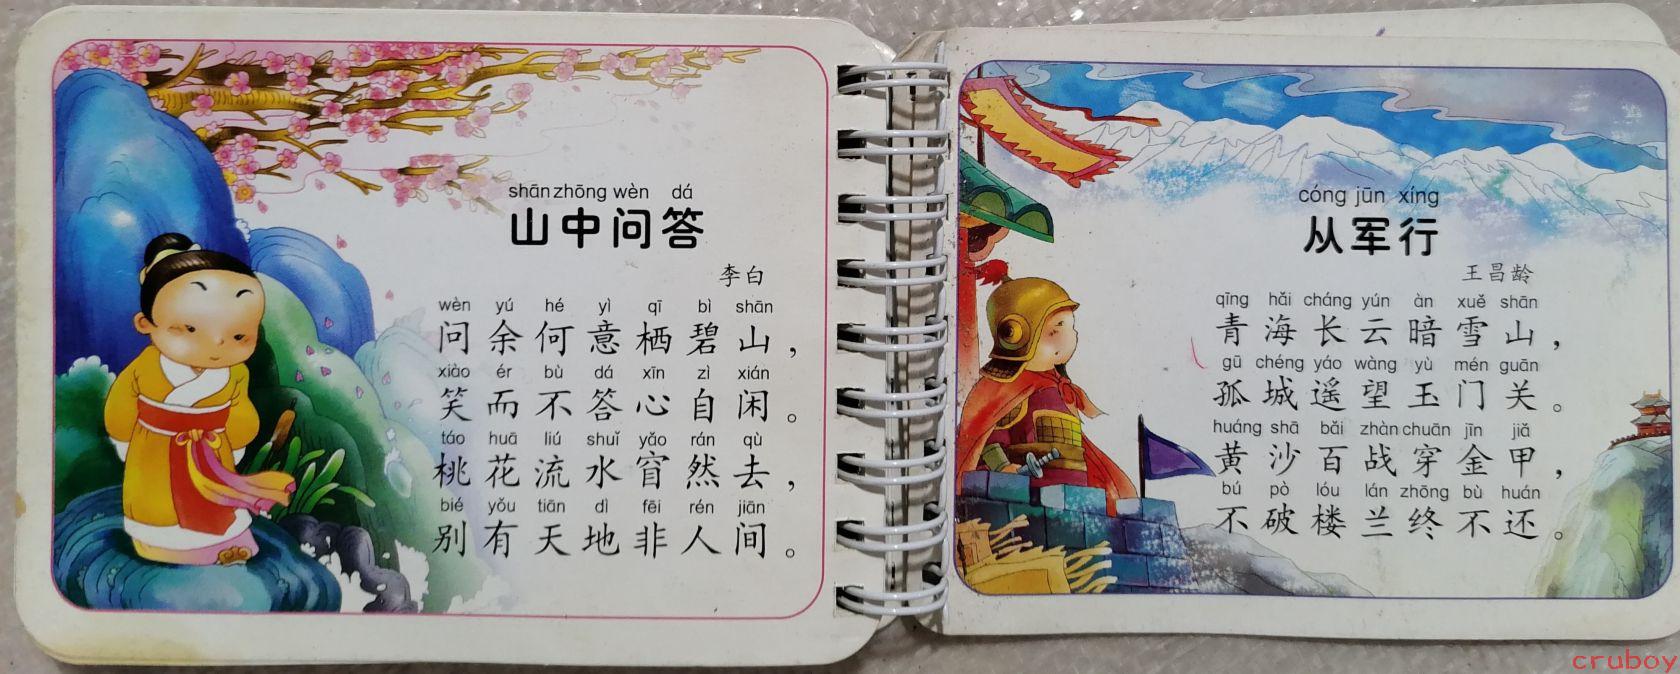 shān zhōng wèn dá
山中问答
李白
wèn yú hé yì qī bì shān
问余何意栖碧山，
xiào ér bù dá xīn zì xián
笑而不答心自闲。
táo huā liú shuǐ yǎo rán qù
桃花流水窅然去，
bié yǒu tiān dì fēi rén jiān
别有天地非人间。
cóng jūn xíng
从军行
王昌龄
qīng hǎi cháng yún àn xuě shān
青海长云暗雪山，
gū chéng yáo wàng yù mén guān
孤城遥望玉门关。
huáng shā bǎi zhàn chuān jīn jiǎ
黄沙百战穿金甲，
bú pò lóu lán zhōng bù huán
不破楼兰终不还。
cruboy